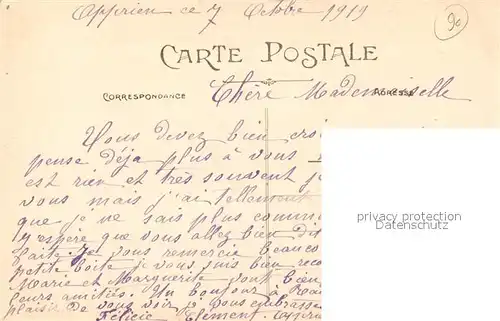 Apprieu ce 7 Octobre 1919
90
CARTE POSTALE
CORRESPONDANCE
ADRESSE
Chère Mademoiselle
Vous devez bien croi
pense déja plus à vous
est rien et très souvent je
vous mais j'ai tellement
que je ne sais plus comm
J'espère que vous allez bien
faite. Je vous remercie beauco
petite boîte je vous suis bien reco
Marie et Marguerite vont bien
leurs amitiés. Un bonjour à
plaisir de vous voir je vous embrasse
Félicie Clément
privacy protection
Datenschutz